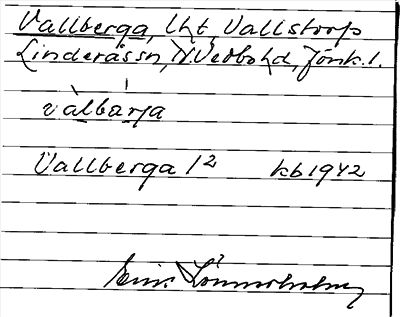 Vallberga, lht, Vallstorp
Linderåssn, N.Vedbohd, Jönk.l.
valbarja
Vallberga 1² kb 1942